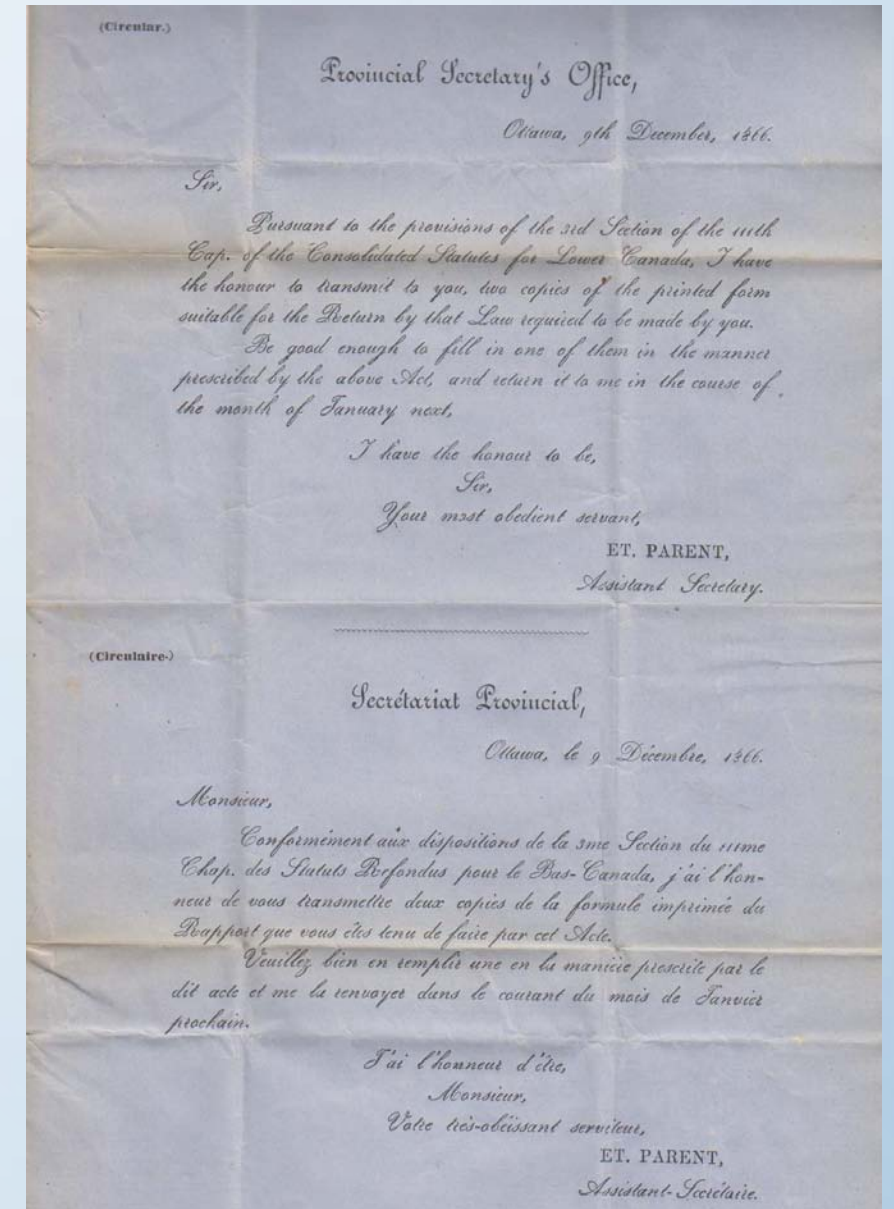 (Circular.)
Provincial Secretary's Office,
Ottawa, 9th December, 1866.
Sir,
Pursuant to the provisions of the 3rd Section of the 111th
Cap. of the Consolidated Statutes for Lower Canada, I have
the honour to transmit to you, two copies of the printed form
suitable for the Return by that Law required to be made by you.
Be good enough to fill in one of them in the manner
prescribed by the above Act, and return it to me in the course of
the month of January next,
I have the honour to be,
Sir,
Your most obedient servant,
ET. PARENT,
Assistant Secretary.
(Circulaire.)
Secrétariat Provincial,
Ottawa, le 9 Décembre, 1866.
Monsieur,
Conformément aux dispositions de la 3me Section du 111me
Chap. des Statuts Refondus pour le Bas-Canada, j'ai l'hon-
neur de vous transmettre deux copies de la formule imprimée du
Rapport que vous êtes tenu de faire par cet Acte.
Veuillez bien en remplir une en la manière prescrite par le
dit acte et me la renvoyer dans le courant du mois de Janvier
prochain.
J'ai l'honneur d'être,
Monsieur,
Votre très-obéissant serviteur,
ET. PARENT,
Assistant-Secrétaire.